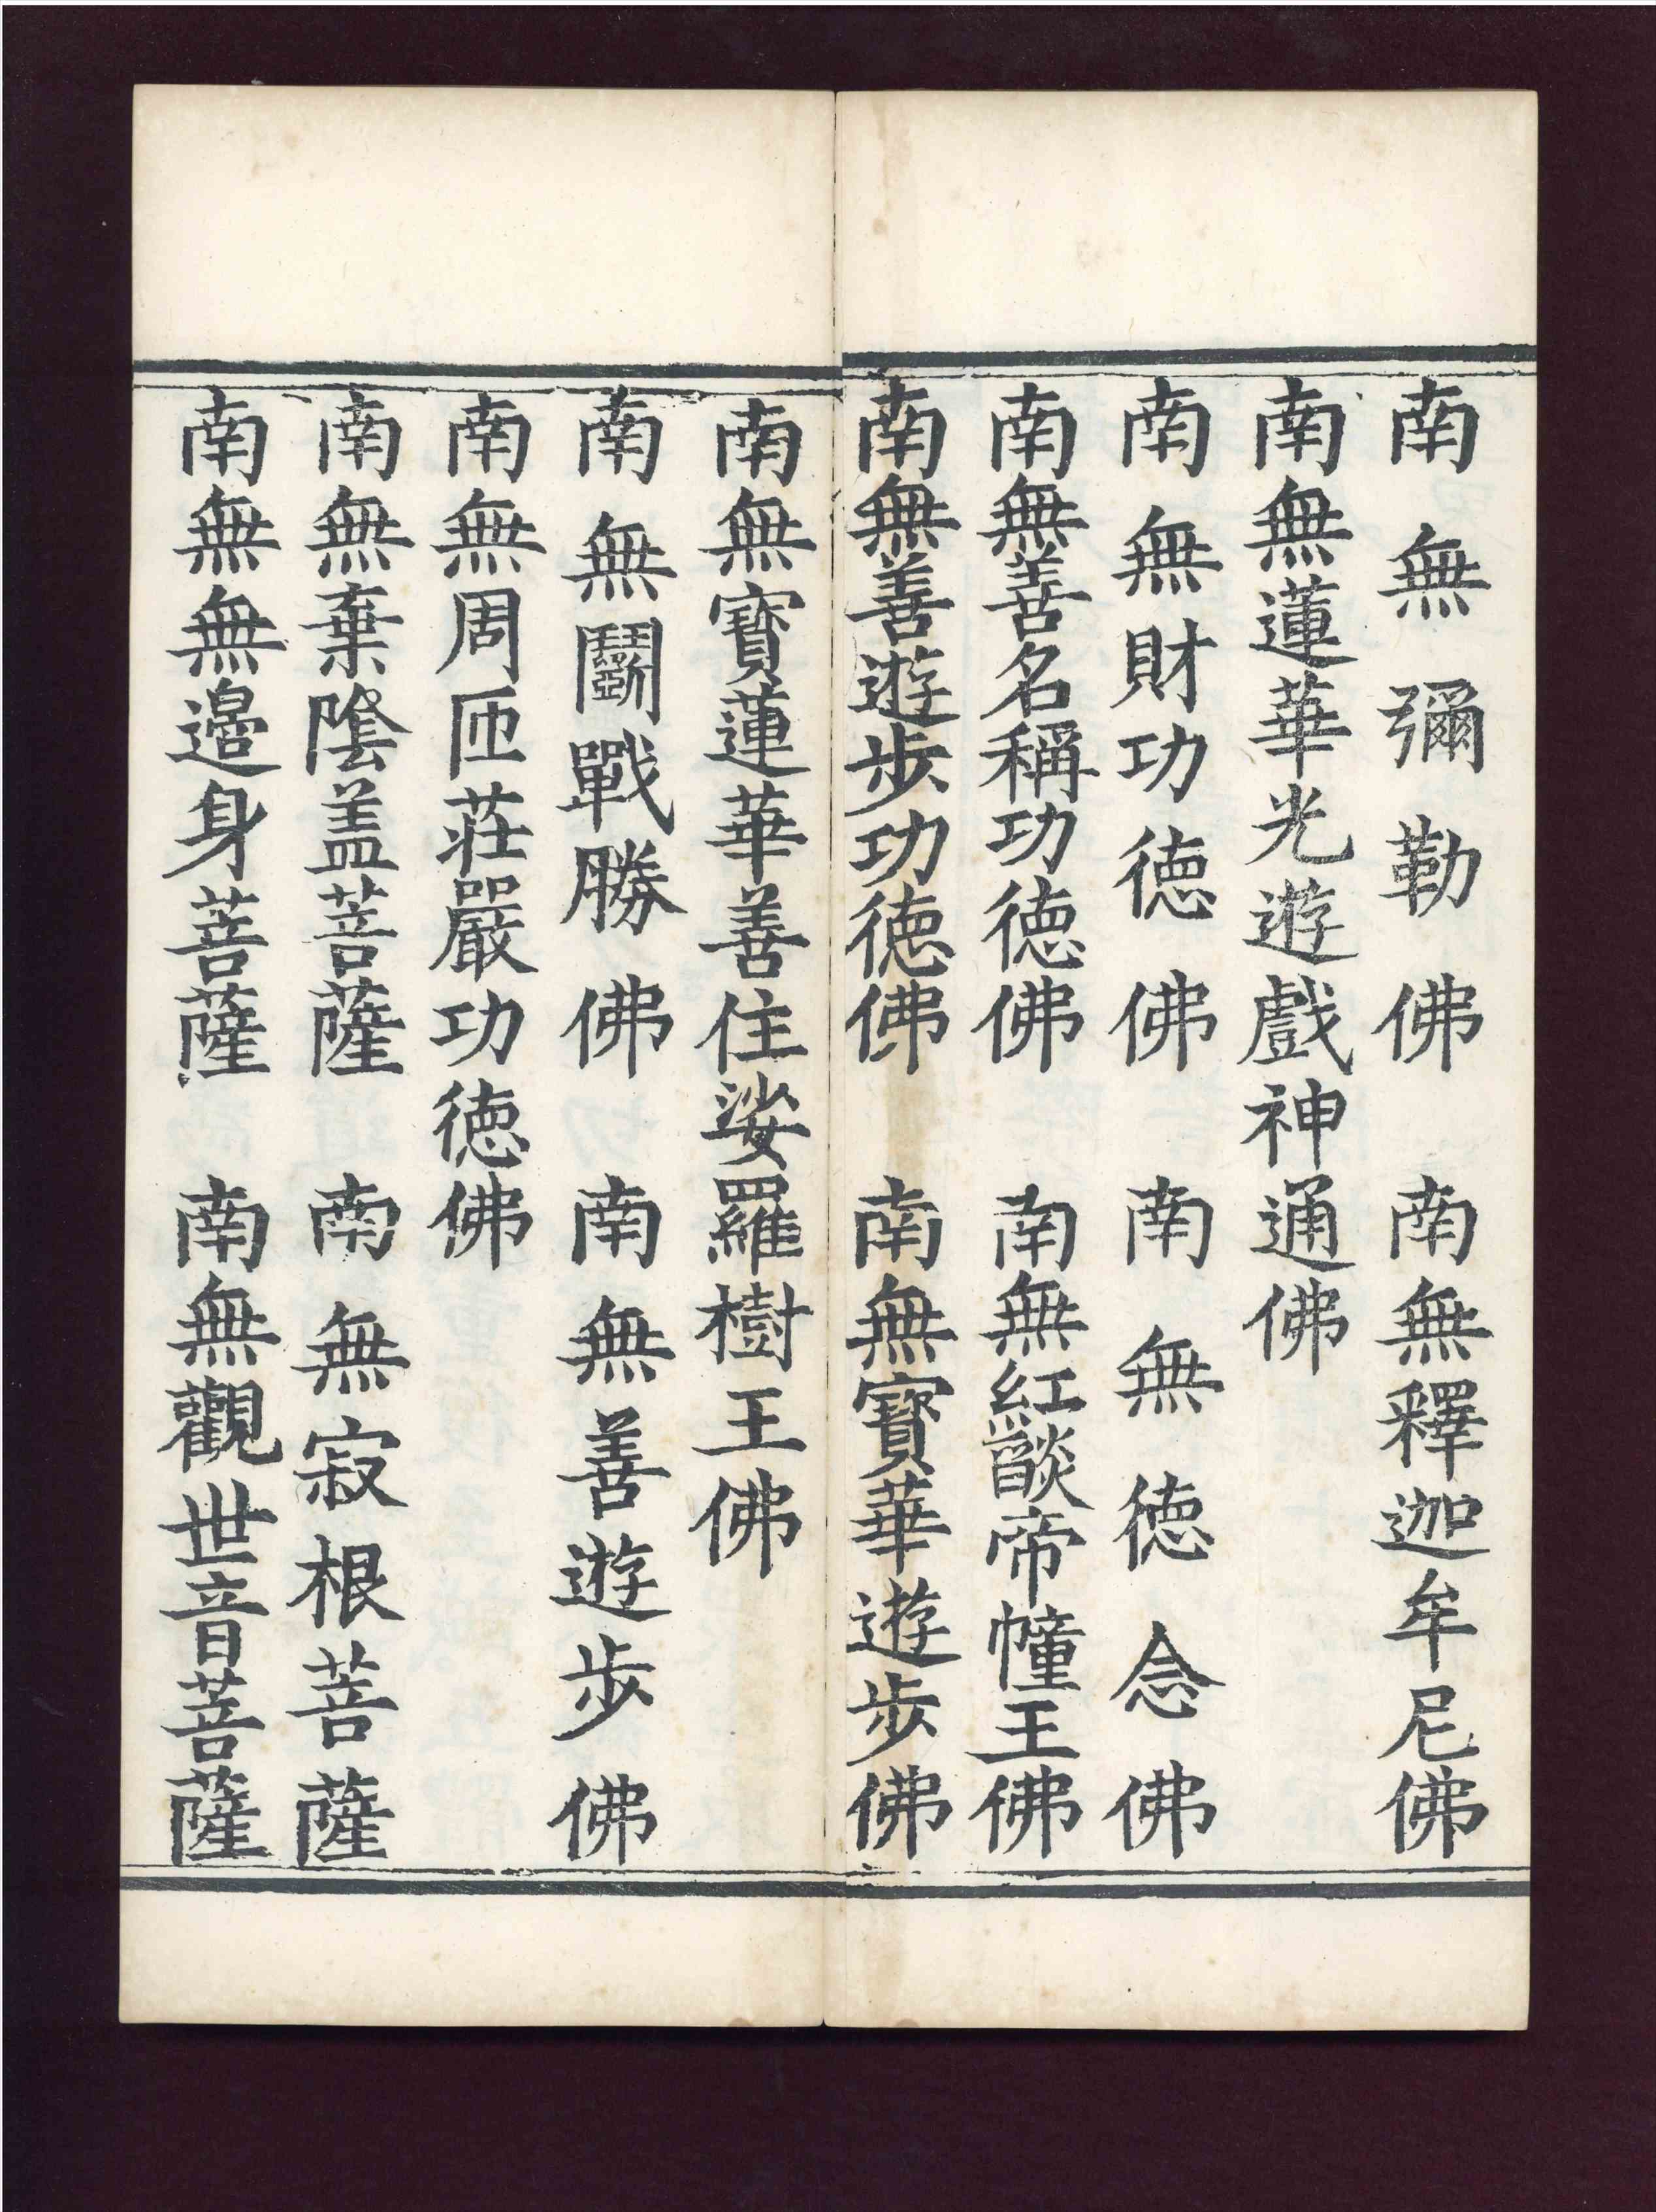 南無彌勒佛　南無釋迦牟尼佛
南無蓮華光遊戲神通佛
南無財功徳佛　南無徳念佛
南無善名稱功徳佛　南無紅𦦨帝幢王佛
南無善遊歩功徳佛　南無寶華遊歩佛
南無寶蓮華善住娑羅樹王佛
南無鬭戰勝佛　南無善遊歩佛
南無周匝莊嚴功徳佛
南無棄陰盖菩薩　南無寂根菩薩
南無無邊身菩薩　南無觀世音菩薩